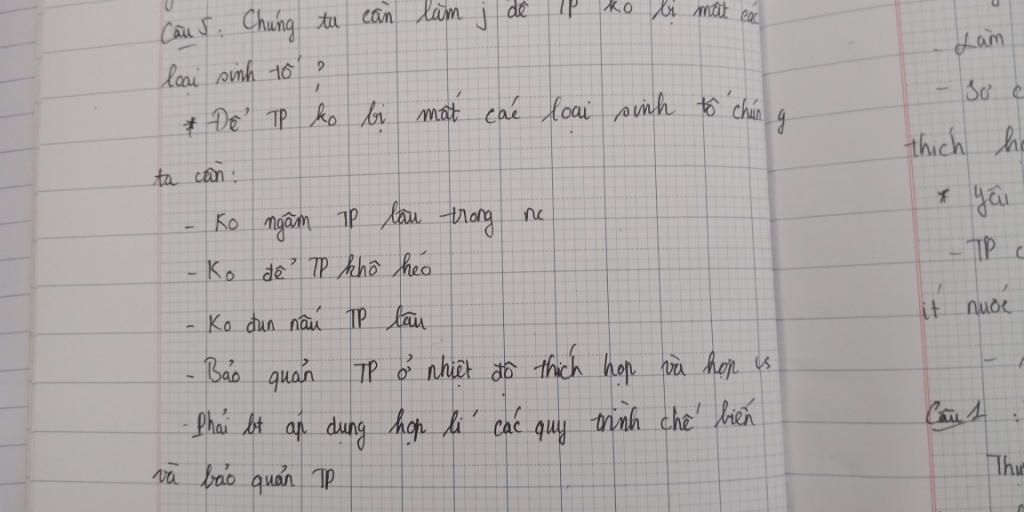 Câu 5. Chúng ta cần làm j để TP ko bị mất các
loại sinh tố ?
* Để TP ko bị mất các loại sinh tố chúng
ta cần:
- Ko ngâm TP lâu trong nc
- Ko để TP khô héo
- Ko đun nấu TP lâu
- Bảo quản TP ở nhiệt độ thích hợp và hợp vs
- Phải bt áp dụng hợp lí các quy trình chế biến
và bảo quản TP
- Làm
- Sơ c
thích h
* Yêu
- TP c
ít nước
-
Câu 1 :
Thư